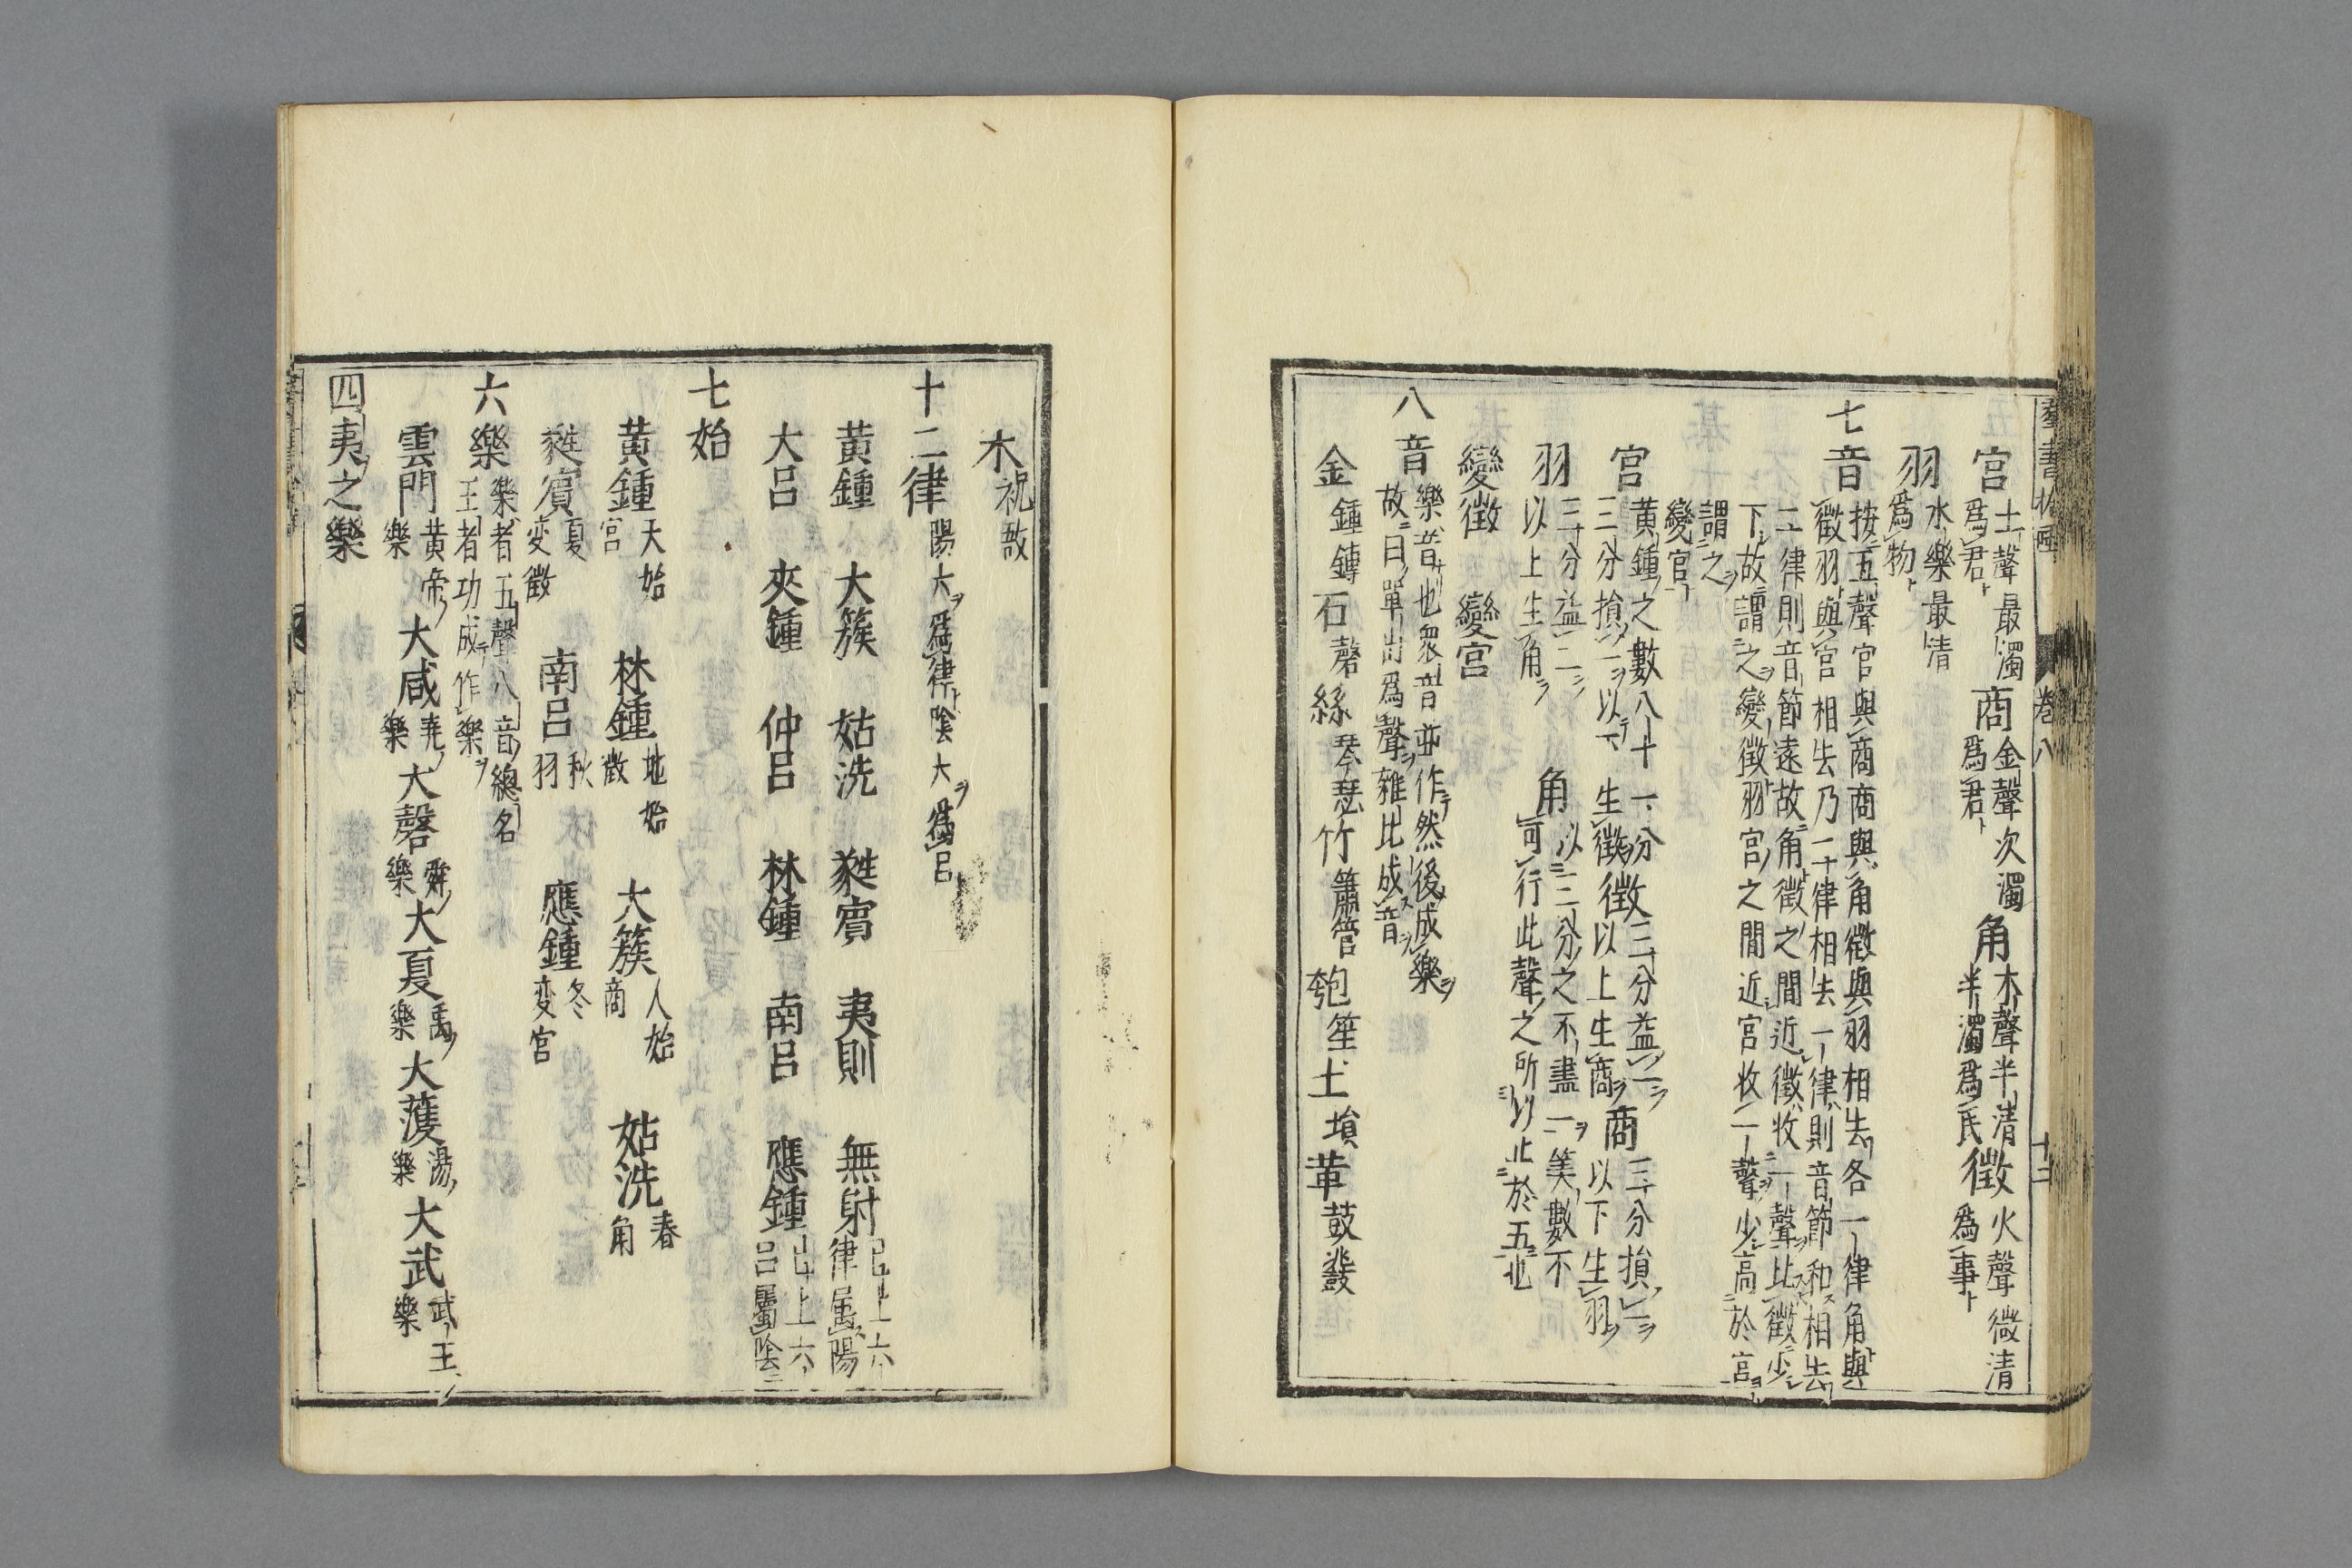 宮 土聲最濁爲君 商 金聲次濁爲君 角 木聲半清半濁爲民 徵 火聲微清爲事
羽 水樂最清爲物
七音 按五聲宮與商商與角徵與羽相去各一律角與
徵羽與宮相去乃二十律相去一律則音節和相去
二律則音節遠故角徵之間近徵收一聲比徵少
下故謂之變徵羽宮之間近宮收一聲少高於宮
謂之
變宮
宮 黃鍾之數八十一分三分損一以下生徵 徵 三分益一以上生商 商 三分損一以下生羽
羽 三分益二以上生角 角 以三分之不盡二美數不可行此聲之所以止於五也
變徵 變宮
八音 樂音也衆音並作然後成樂
故曰單出爲聲雜比成音
金 鍾鎛 石 磬 絲 琴瑟 竹 簫管 匏 笙 土 塤 革 鼓鼗
群書拾唾 巻八 十二
木 祝敔
十二律 陽大爲律陰大爲呂
黃鍾 大簇 姑洗 蕤賓 夷則 無射 已上六律屬陽
大呂 夾鍾 仲呂 林鍾 南呂 應鍾 已上六呂屬陰
七始
黃鍾 天始宮 林鍾 地始徵 大簇 人始商 姑洗 春角
蕤賓 夏変徵 南呂 秋羽 應鍾 冬変宮
六樂 樂者五聲八音總名
王者功成作樂
雲門 黃帝樂 大咸 堯樂 大磬 舜樂 大夏 禹樂 大濩 湯樂 大武 武王樂
四夷之樂